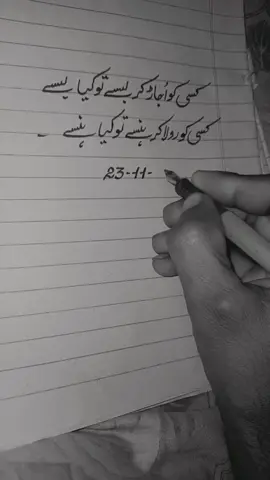 کسی کو اجاڑ کر بسے تو کیا بسے
کسی کو رولا کر ہنسے تو کیا ہنسے ۔
23-11-